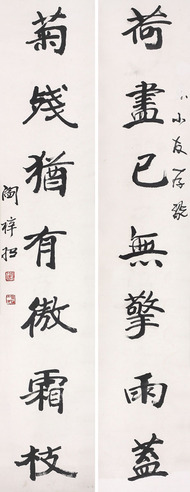 荷盡已無擎雨蓋
小友存
菊殘猶有傲霜枝